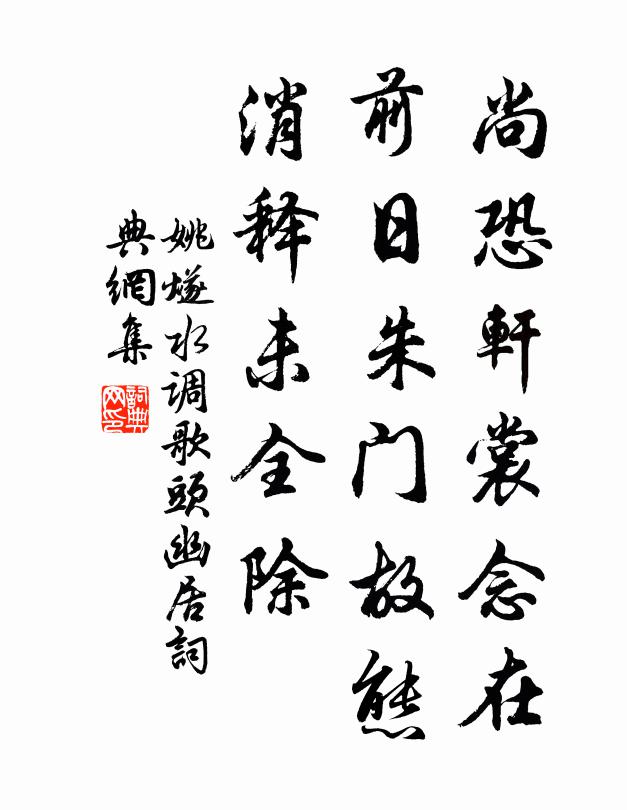 尚恐軒裳念在
前日朱门故態
消释未全除
姚燧水调歌頭幽居詞
典網集
詞典
网印